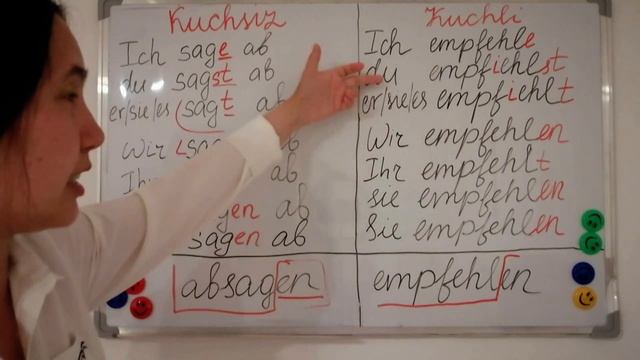 Kuchsiz
Ich sage ab
du sagst ab
er/sie/es sagt ab
Wir sa ab
Ihr ab
gen ab
sagen ab
absagen
Kuchli
Ich empfehle
du empfiehlst
er/sie/es empfiehlt
Wir empfehlen
Ihr empfehlt
sie empfehlen
Sie empfehlen
empfehlen